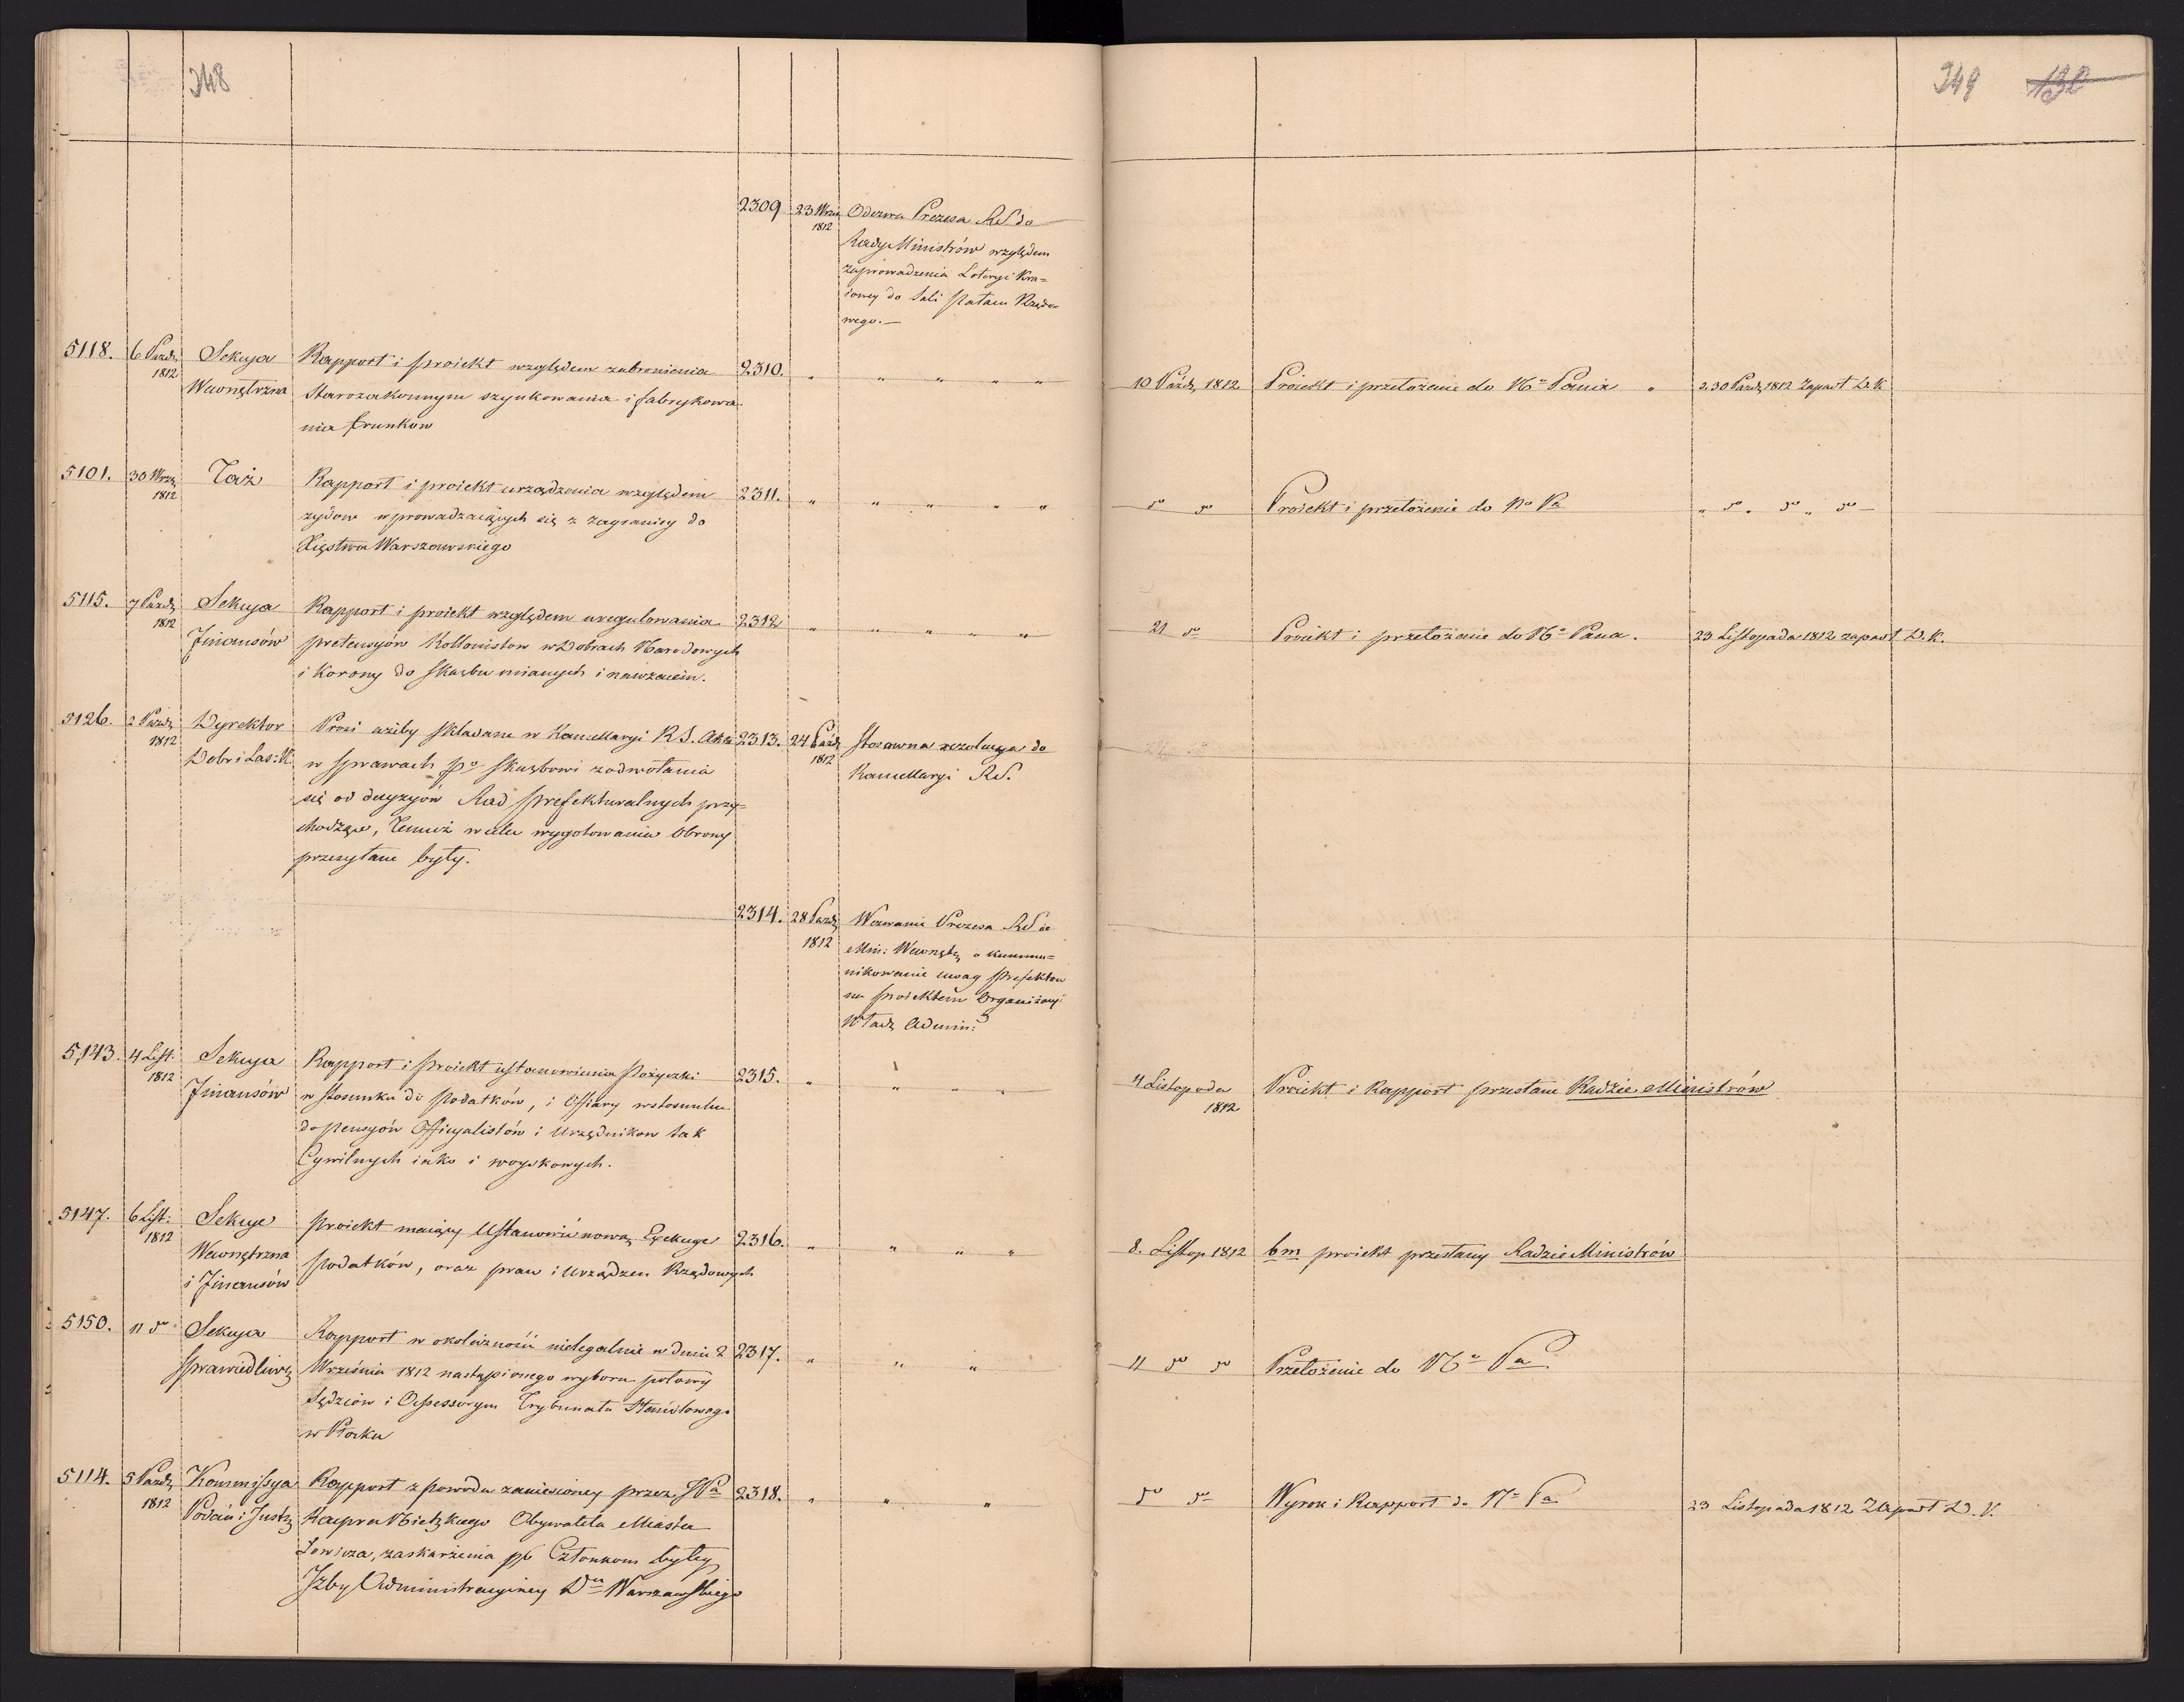 348
349 132
2309 23 Wrześ 1812 Odezwa Prezesa RS do
Rady Ministrów względem
zaprowadzenia Loteryi Kra=
iowey do Sali Pałacu Rządo-
wego.—
5118. 6 Paźdz 1812 Sekcya Wewnętrzna
Rapport i proiekt względem zabronienia
Starozakonnym szynkowania i fabrykowa-
nia trunków
2310. " " " " "
10 Paźdz 1812 Proiekt i przełożenie do N° Pania " d. 30 Paźdz 1812 zapadł D.K
5101. 30 Wrześ 1812 Taż
Rapport i proiekt urządzenia względem
zydow wprowadzaiących się z zagranicy do
Xięstwa Warszawskiego
2311. " " " " "
do do Proiekt i przełożenie do No Pa " do " do " do —
5115. 7 Paźdz 1812 Sekcya Finansów
Rapport i proiekt względem uregulowania
pretensyów Kollonistow w Dobrach Narodowych
i Korony do Skarbu mianych i nawzaiem.
2312 " " " " "
21 do Proiekt i przełożenie do N° Pana. 23 Listopada 1812 zapadł D.K.
5126. 2 Paźdz 1812 Dyrektor Dobr i Las: N.
Prosi ażeby składane w Kancellaryi R.S. Akta
w sprawach po Skarbowi z odwołania
się od decyzyów Rad prefekturalnych przy=
chodzące, Temuż w celu wygotowania Obrony
przesyłane były.
2313. 24 Paźdz 1812 Stosowna rezolucya do
Kancellaryi RS.
2314. 28 Paźdz 1812 Wezwanie Prezesa RS do
Min: Wewnętrz o kommu=
nikowanie uwag Prefektow
na proiektem Organizacyi
Władz Admin:
5143. 4 List: 1812 Sekcya Finansów
Rapport i proiekt ustanowienia pożyczki
w stosunku do podatków, i Offiary w stosunku
do pensyów Officyalistów i Urzędnikow tak
Cywilnych iako i woyskowych.
2315. " " " "
4 Listopada 1812 Proiekt i Rapport przesłane Radzie Ministrów
5147. 6 List: 1812 Sekcye Wewnętrzna i Finansów
Proiekt maiący Ustanowić nową Exekucye
podatków, oraz praw i Urządzen Rządowych
2316. " " " "
8. Listop 1812 tm proiekt przesłany Radzie Ministrów
5150. 11 do Sekcya Sprawiedliwoś
Rapport w okoliczności nielegalnie w dniu 2
Września 1812 nastąpionego wyboru połowy
Sędziów i Assessorym Trybunału
w Płocku
2317. " " "
11 do do Przełożenie do N° Pa
5114. 5 Paźdz 1812 Kommissya Podań i Instr
Rapport z powodu zaniesioney przez JPa
Kacpra Obywatela Miasta
Łowicza, zaskarżenia pp Członkom byłey
Izby Administracyiney Du Warszawskiego
2318. " " "
do do Wyrok i Rapport do N° Pa 23 Listopada 1812 Zapadł D.K.